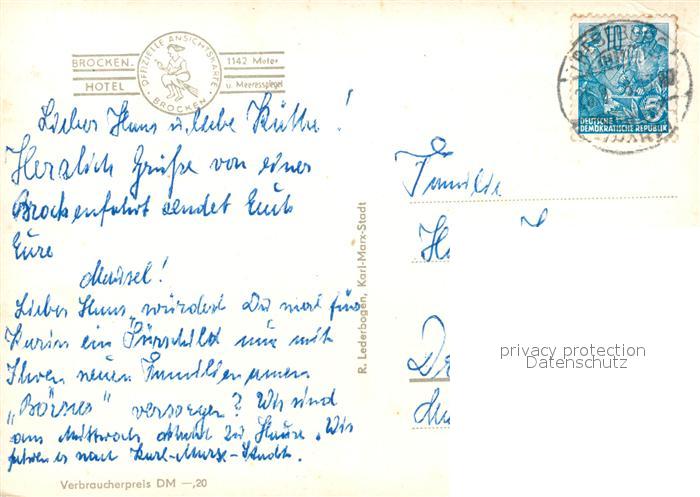 BROCKEN-HOTEL
OFFIZIELLE ANSICHTSKARTE BROCKEN
1142 Meter
u. Meeresspiegel
10
5
DEUTSCHE
DEMOKRATISCHE REPUBLIK
Lieber Hans u. liebe Käthe!
Herzlich Grüße von einer
Brockenfahrt sendet Euch
Eure
Mausel!
Lieber Hans, würdest Du mal für
Karin ein Türschild nur mit
Ihrem neuen Familiennamen
„Börner" versorgen? Wir sind
am Mittwoch abend zu Hause. Wir
fahren es nach Karl-Marx-Stadt.
Verbraucherpreis DM —,20
R. Lederbogen, Karl-Marx-Stadt
Familie
H
Dr
privacy protection
Datenschutz